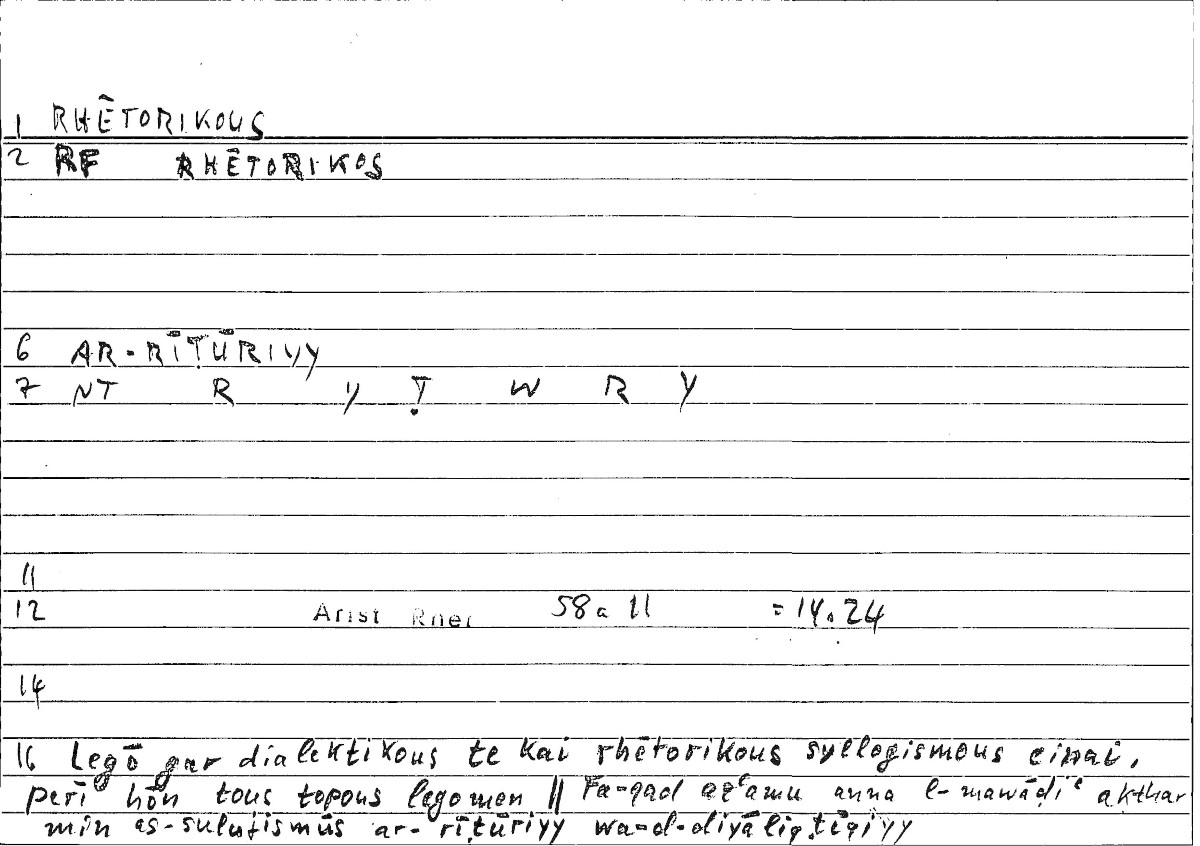 1 RHĒTORIKOUS
2 RF RHĒTORIKOS
6 AR-RĪṬŪRIYY
7 NT R Y Ṭ W R Y
11
12 Arist Rhet 58a 11 = 14.24
14
16 Legō gar dialektikous te kai rhētorikous syllogismous einai,
peri hōn tous topous legomen || Fa-qad azʿamu anna l-mawāḍiʿ akthar
min as-sulujismūs ar-rīṭūriyy wa-d-diyāliqṭīqiyy